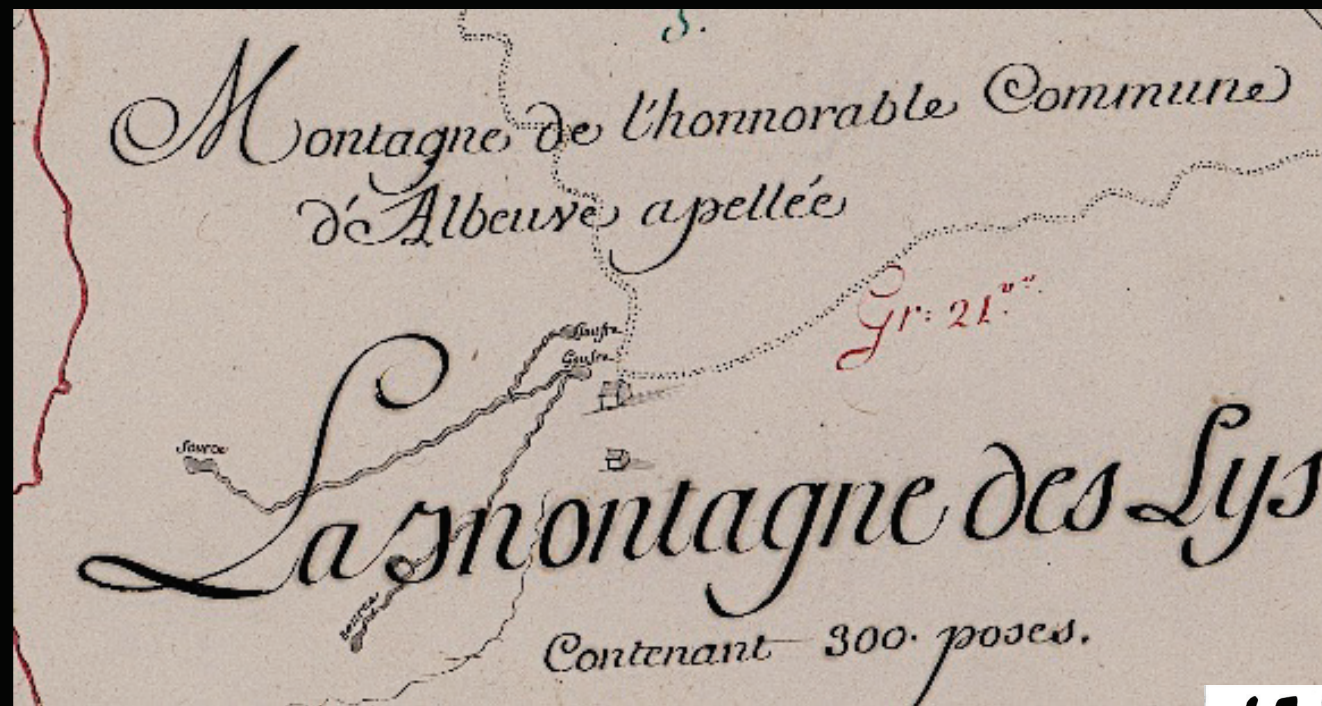 5.
Montagne de l'honnorable Commune
d'Albeuve apellée
Gr: 21.
Goufre
Goufre
Source
La montagne des Lys
Source
Contenant 300. poses.